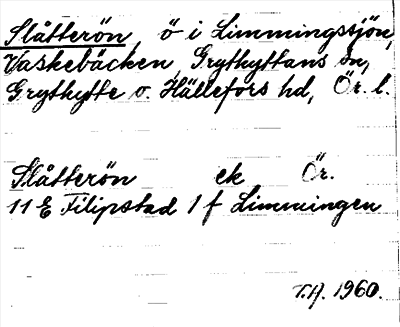 Slåtterön ö i Limmingssjön,
Vaskebäcken, Grythyttans sn,
Grythytte o. Hällefors hd, Ör. l.
Slåtterön ek Ör.
11 E Filipstad 1 f Limmingen
T.A. 1960.